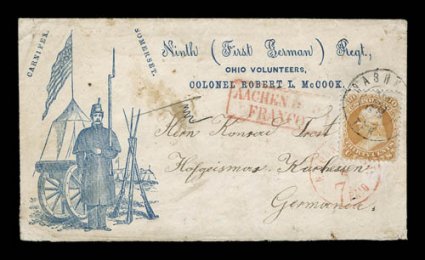 CARNIFEX.
SOMERSET.
Ninth (First German) Regt,
OHIO VOLUNTEERS,
COLONEL ROBERT L. McCOOK.
AACHEN
FRANCO
Herrn Konrad
Hofgeismar Kurhessen
Germania
7